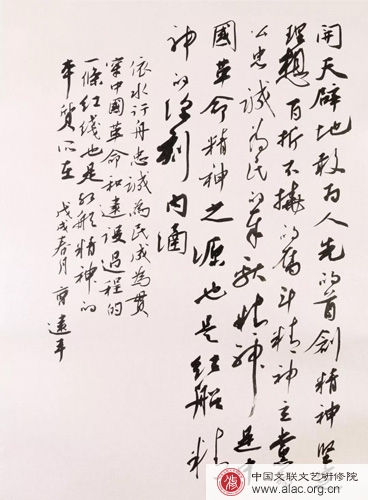 開天辟地敢为人先的首創精神坚
理想百折不撓的奮斗精神立黨
公忠誠為民的奉献精神是
國革命精神之源也是红船精
神的深刻内涵
依水行舟忠誠為民成為貫
穿中國革命和建设过程的
一條红线也是红船精神的
本質所在 戊戌春月
中国文联文艺研修院
www.alac.org.cn